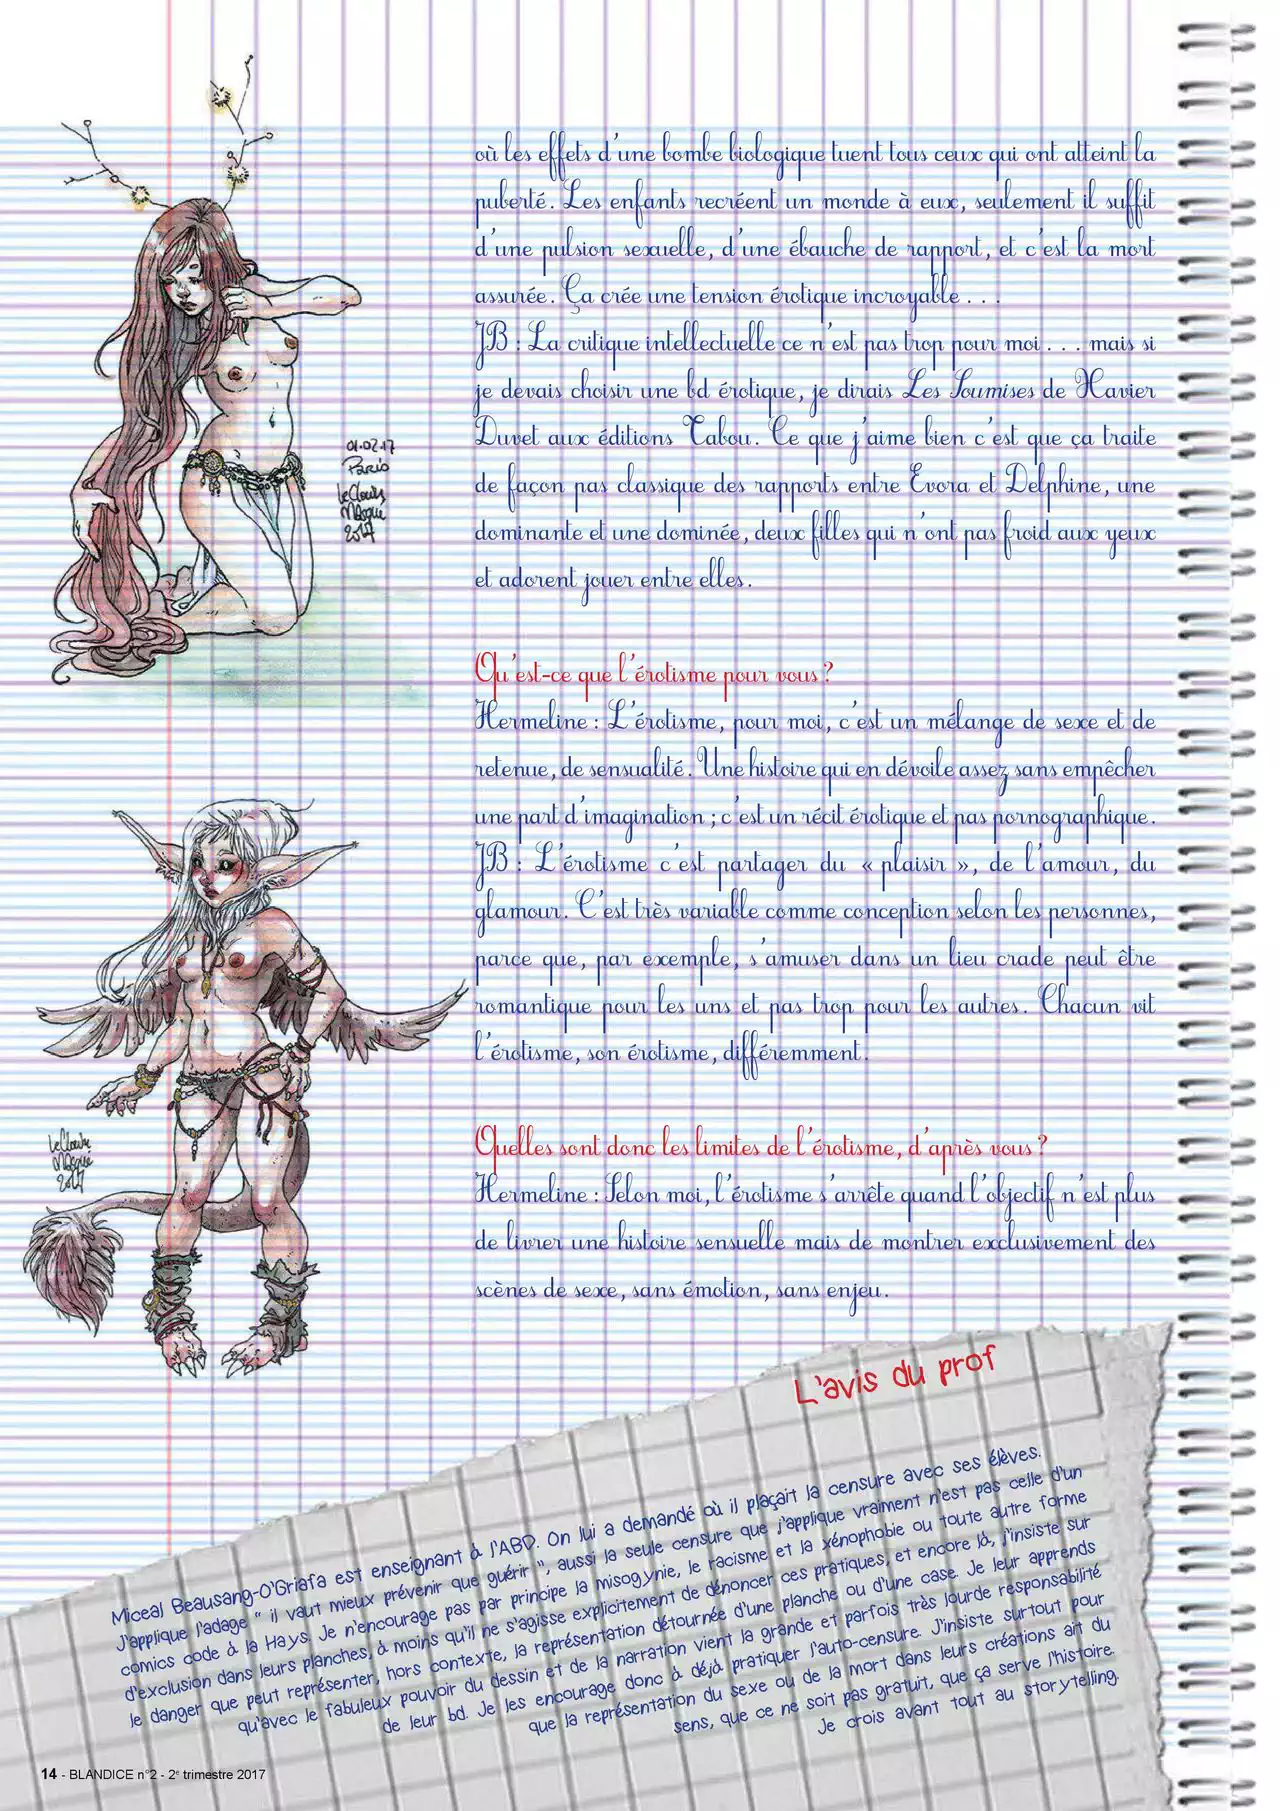 où les effets d'une bombe biologique tuent tous ceux qui ont atteint la
puberté. Les enfants recréent un monde à eux, seulement il suffit
d'une pulsion sexuelle, d'une ébauche de rapport, et c'est la mort
assurée. Ça crée une tension érotique incroyable...
JB : La critique intellectuelle ce n'est pas trop pour moi... mais si
je devais choisir une bd érotique, je dirais Les Soumises de Xavier
Duvet aux éditions Tabou. Ce que j'aime bien c'est que ça traite
de façon pas classique des rapports entre Evora et Delphine, une
dominante et une dominée, deux filles qui n'ont pas froid aux yeux
et adorent jouer entre elles.
01.02.17
Paris
2017
Qu'est-ce que l'érotisme pour vous ?
Hermeline : L'érotisme, pour moi, c'est un mélange de sexe et de
retenue, de sensualité. Une histoire qui en dévoile assez sans empêcher
une part d'imagination ; c'est un récit érotique et pas pornographique.
JB : L'érotisme c'est partager du « plaisir », de l'amour, du
glamour. C'est très variable comme conception selon les personnes,
parce que, par exemple, s'amuser dans un lieu crade peut être
romantique pour les uns et pas trop pour les autres. Chacun vit
l'érotisme, son érotisme, différemment.
2017
Quelles sont donc les limites de l'érotisme, d'après vous ?
Hermeline : Selon moi, l'érotisme s'arrête quand l'objectif n'est plus
de livrer une histoire sensuelle mais de montrer exclusivement des
scènes de sexe, sans émotion, sans enjeu.
L'avis du prof
Miceal Beausang-O'Griafa est enseignant à l'ABD. On lui a demandé où il plaçait la censure avec ses élèves.
J'applique l'adage " il vaut mieux prévenir que guérir ", aussi la seule censure que j'applique vraiment n'est pas celle d'un
comics code à la Hays. Je n'encourage pas par principe la misogynie, le racisme et la xénophobie ou toute autre forme
d'exclusion dans leurs planches, à moins qu'il ne s'agisse explicitement de dénoncer ces pratiques, et encore là, j'insiste sur
le danger que peut représenter, hors contexte, la représentation détournée d'une planche ou d'une case. Je leur apprends
qu'avec le fabuleux pouvoir du dessin et de la narration vient la grande et parfois très lourde responsabilité
de leur bd. Je les encourage donc à déjà pratiquer l'auto-censure. J'insiste surtout pour
que la représentation du sexe ou de la mort dans leurs créations ait du
sens, que ce ne soit pas gratuit, que ça serve l'histoire.
Je crois avant tout au storytelling.
14 - BLANDICE n°2 - 2e trimestre 2017